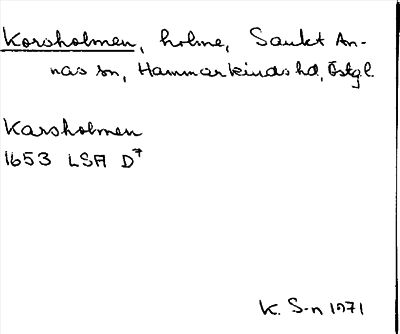 Korsholmen, holme, Sankt An-
nas sn, Hammarkinds hd, Östgl.
Karsholmen
1653 LSA D7
K. S-n 1971